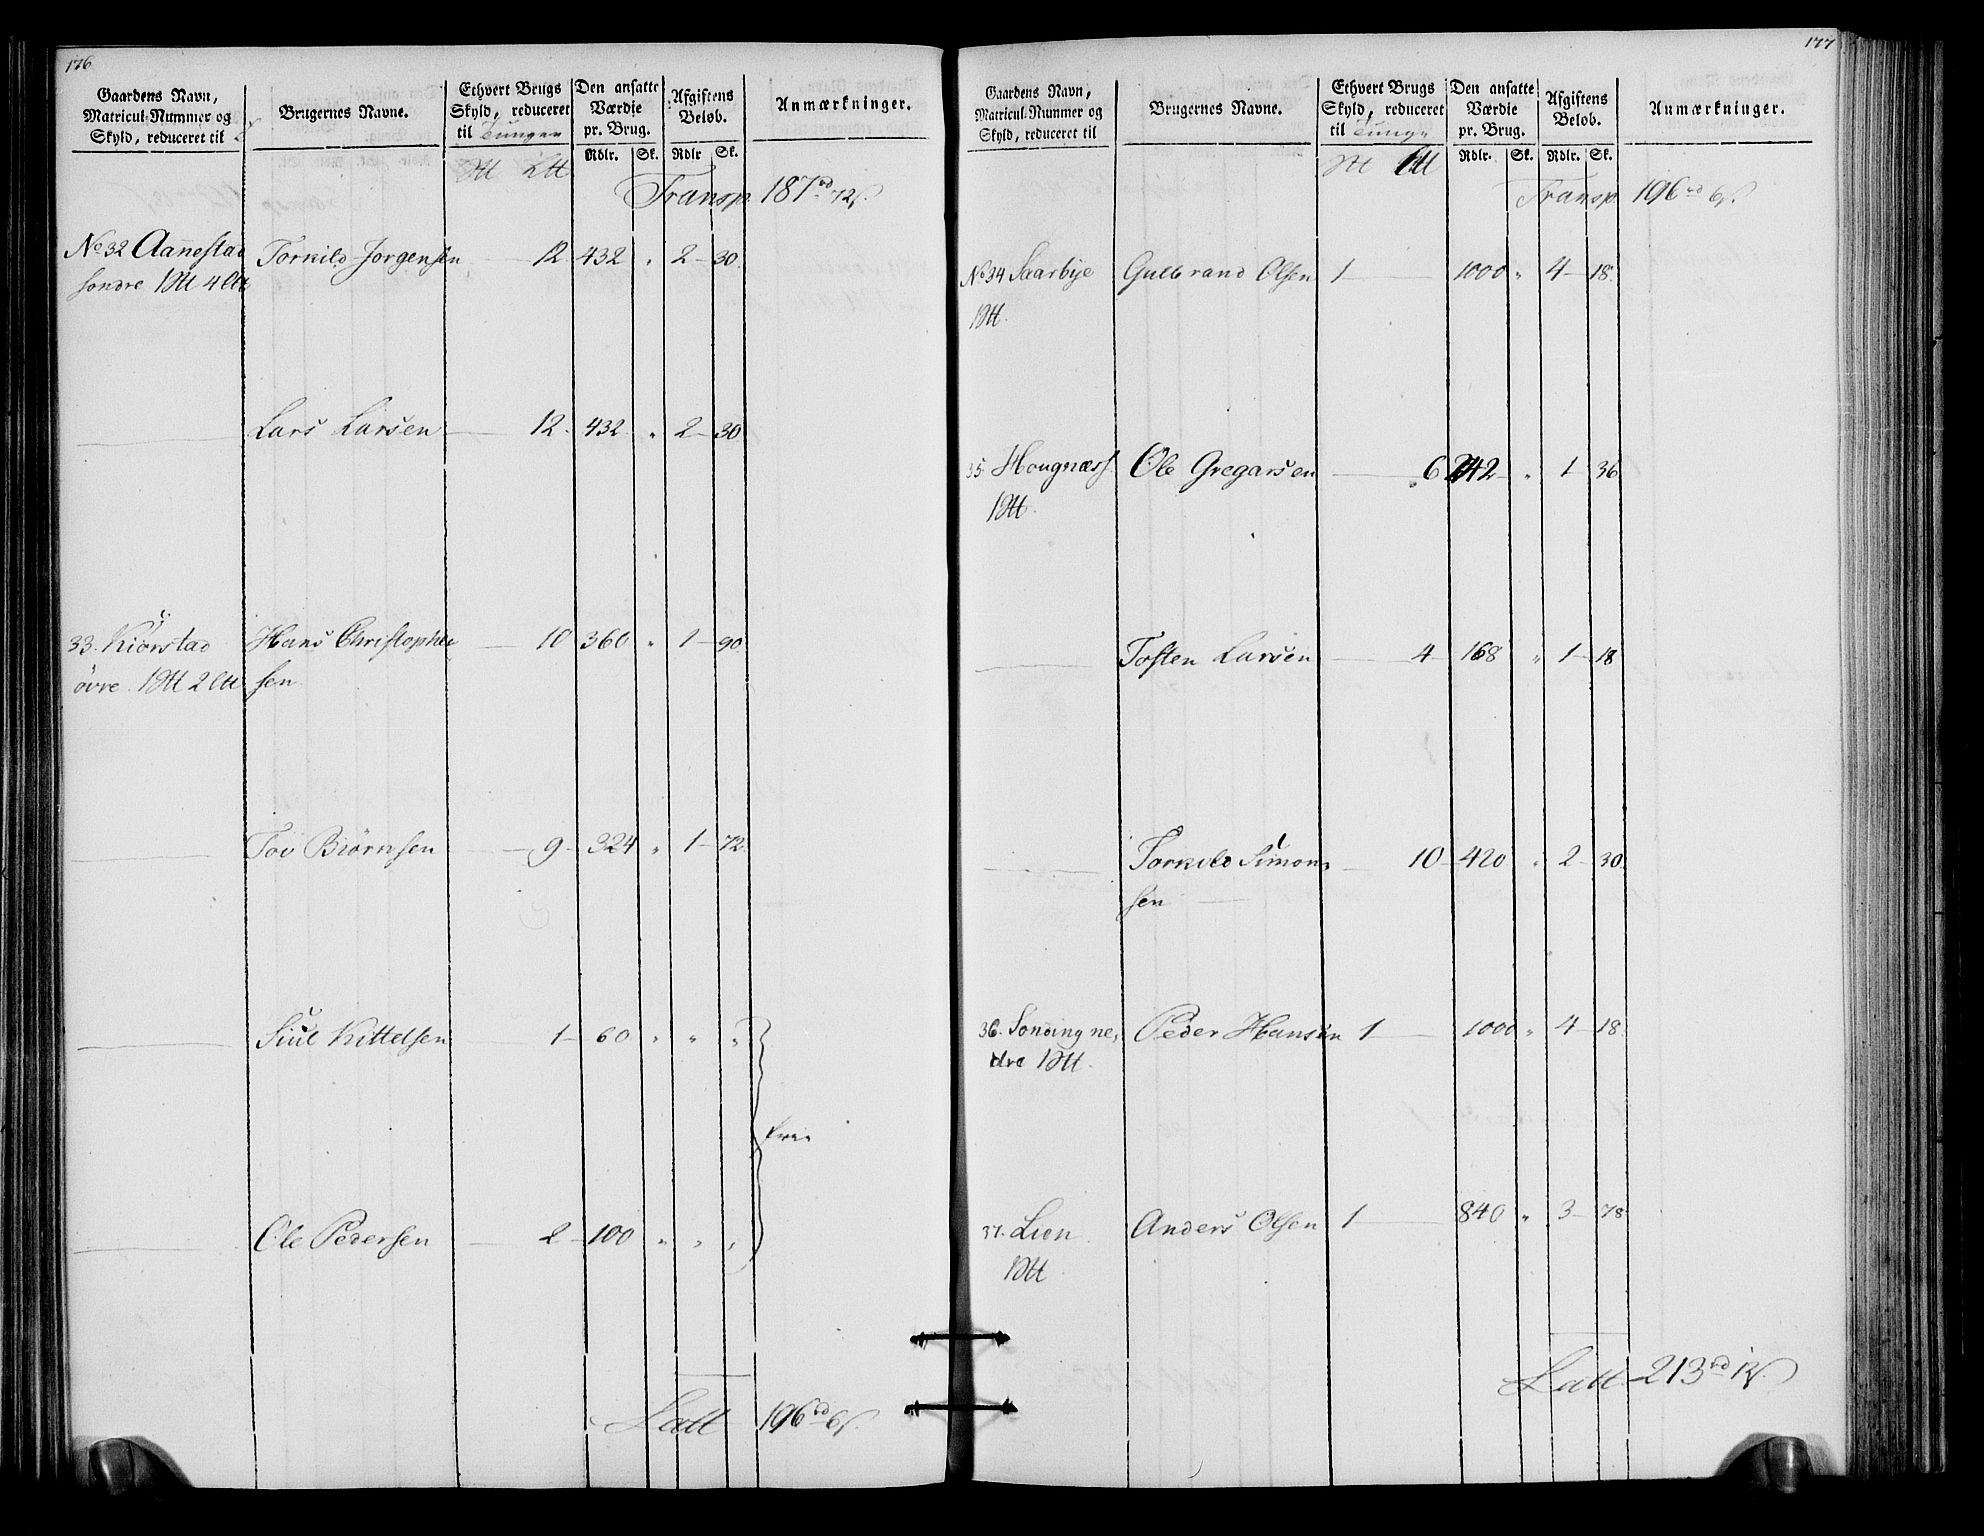 176
Gaardens Navn,
Matricul-Nummer og
Skyld, reduceret til
Brugernes Navne.
Ethvert Brugs
Skyld, reduceret
til Tunger
Den ansatte
Værdie
pr. Brug.
Rdlr. Sk.
Afgiftens
Beløb.
Rdlr Sk.
Anmærkninger.
Transp. 187 rd 72 s.
No 32 Aannestad Torkild Jorgensen 12 432 " 2 30.
sondre 1 4
Lars Larsen 12. 432 " 2 30
33. Kiørstad Hans Christopher 10 360 " 1 90
övre. 1 2 sen
Tov Biørnsen 9 324 " 1 72.
Siul Kittelsen 1 60 " " "
frie
Ole Pedersen 2 100 " " "
Latt 196 rd 6 s.
177
Gaardens Navn,
Matricul-Nummer og
Skyld, reduceret til
Brugernes Navne.
Ethvert Brugs
Skyld, reduceret
til Tunge
Den ansatte
Værdie
pr. Brug.
Rdlr. Sk.
Afgiftens
Beløb.
Rdlr. Sk.
Anmærkninger.
Transp. 196 rd 6 s.
No 34 Saarbye Gulbrand Olsen 1 1000 " 4 18.
1
35. Hougnæss. Ole Gregarsen 6 242 " 1 36
1
Tosten Larsen 4 168 " 1 18
Torkild Simon- 10 420 " 2 30
sen
36. Sonding ne- Peder Hansen 1 1000 " 4 18.
dre 1
37. Lion Anders Olsen 1 840 " 3 78
1
Latt 213 rd 12 s.